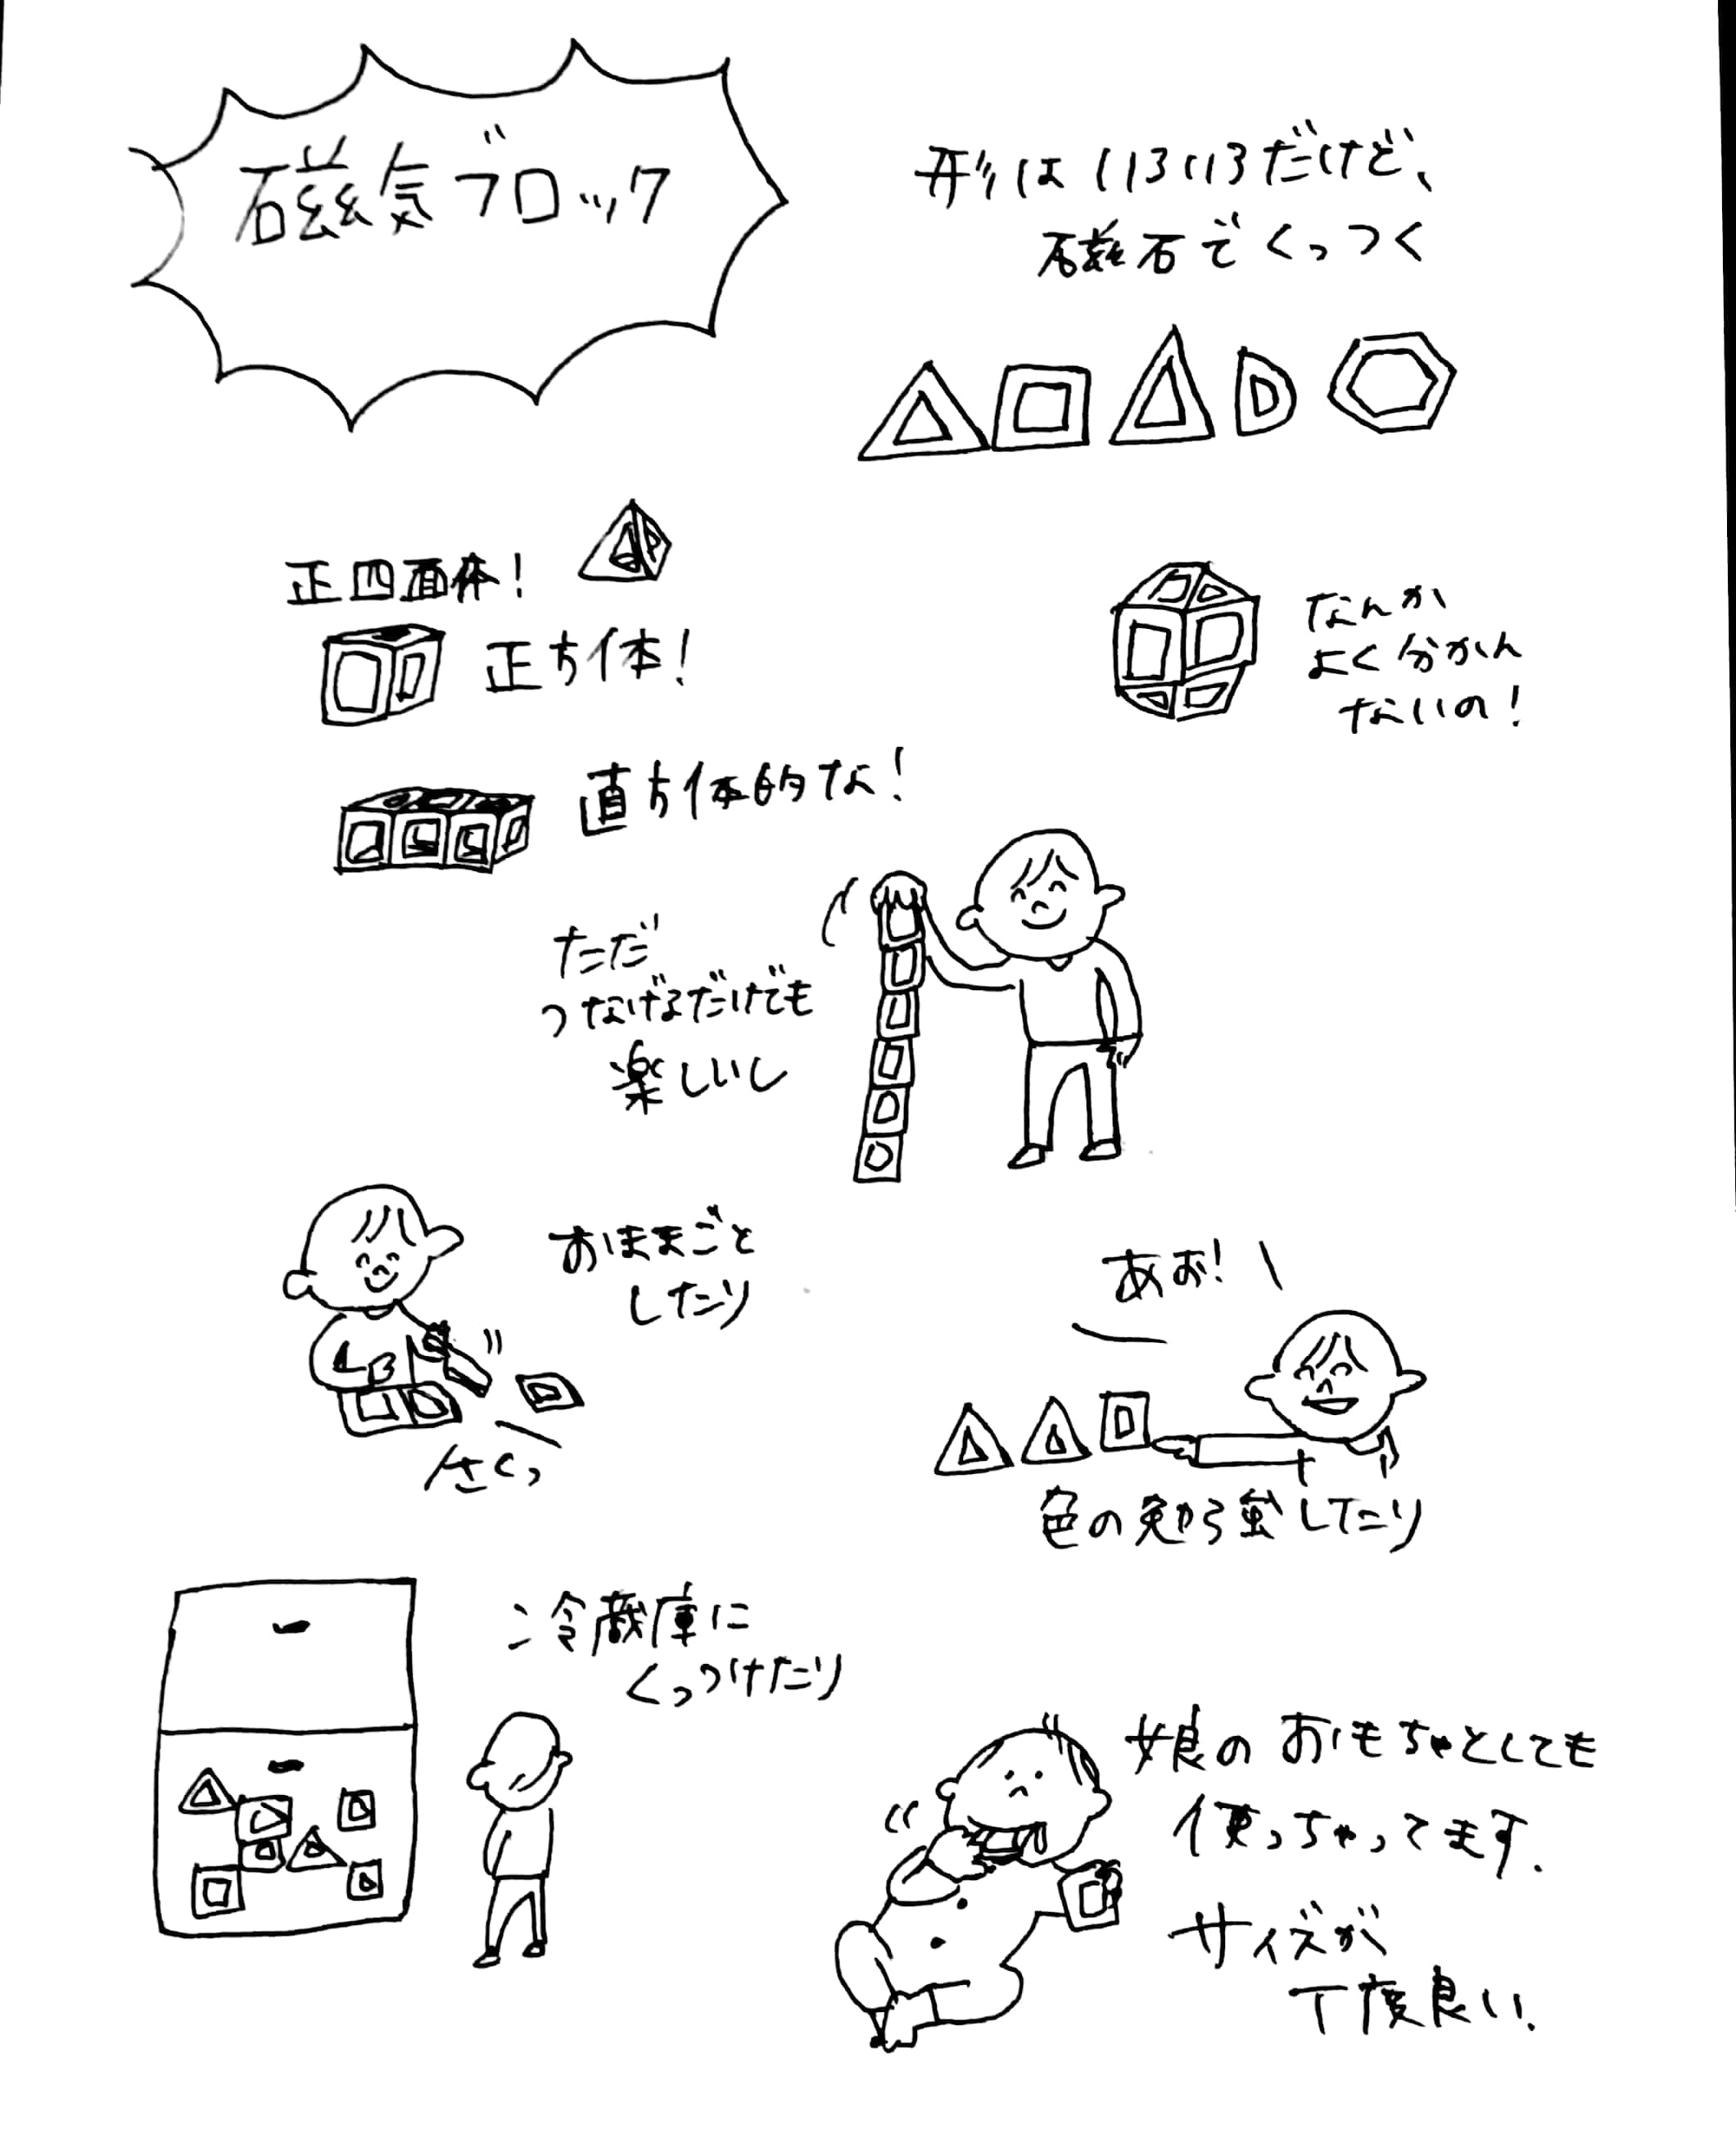 磁気ブロック
形はいろいろだけど、
磁石でくっつく
正四面体!
正方体!
なんか
よく分かん
ないの!
直方体的な!
ただ
つなげるだけでも
楽しいし
おままごと
したり
さくっ
あお!
色の勉強したり
冷蔵庫に
くっつけたり
娘のおもちゃとしても
使っちゃってます.
サイズが
丁度良い.